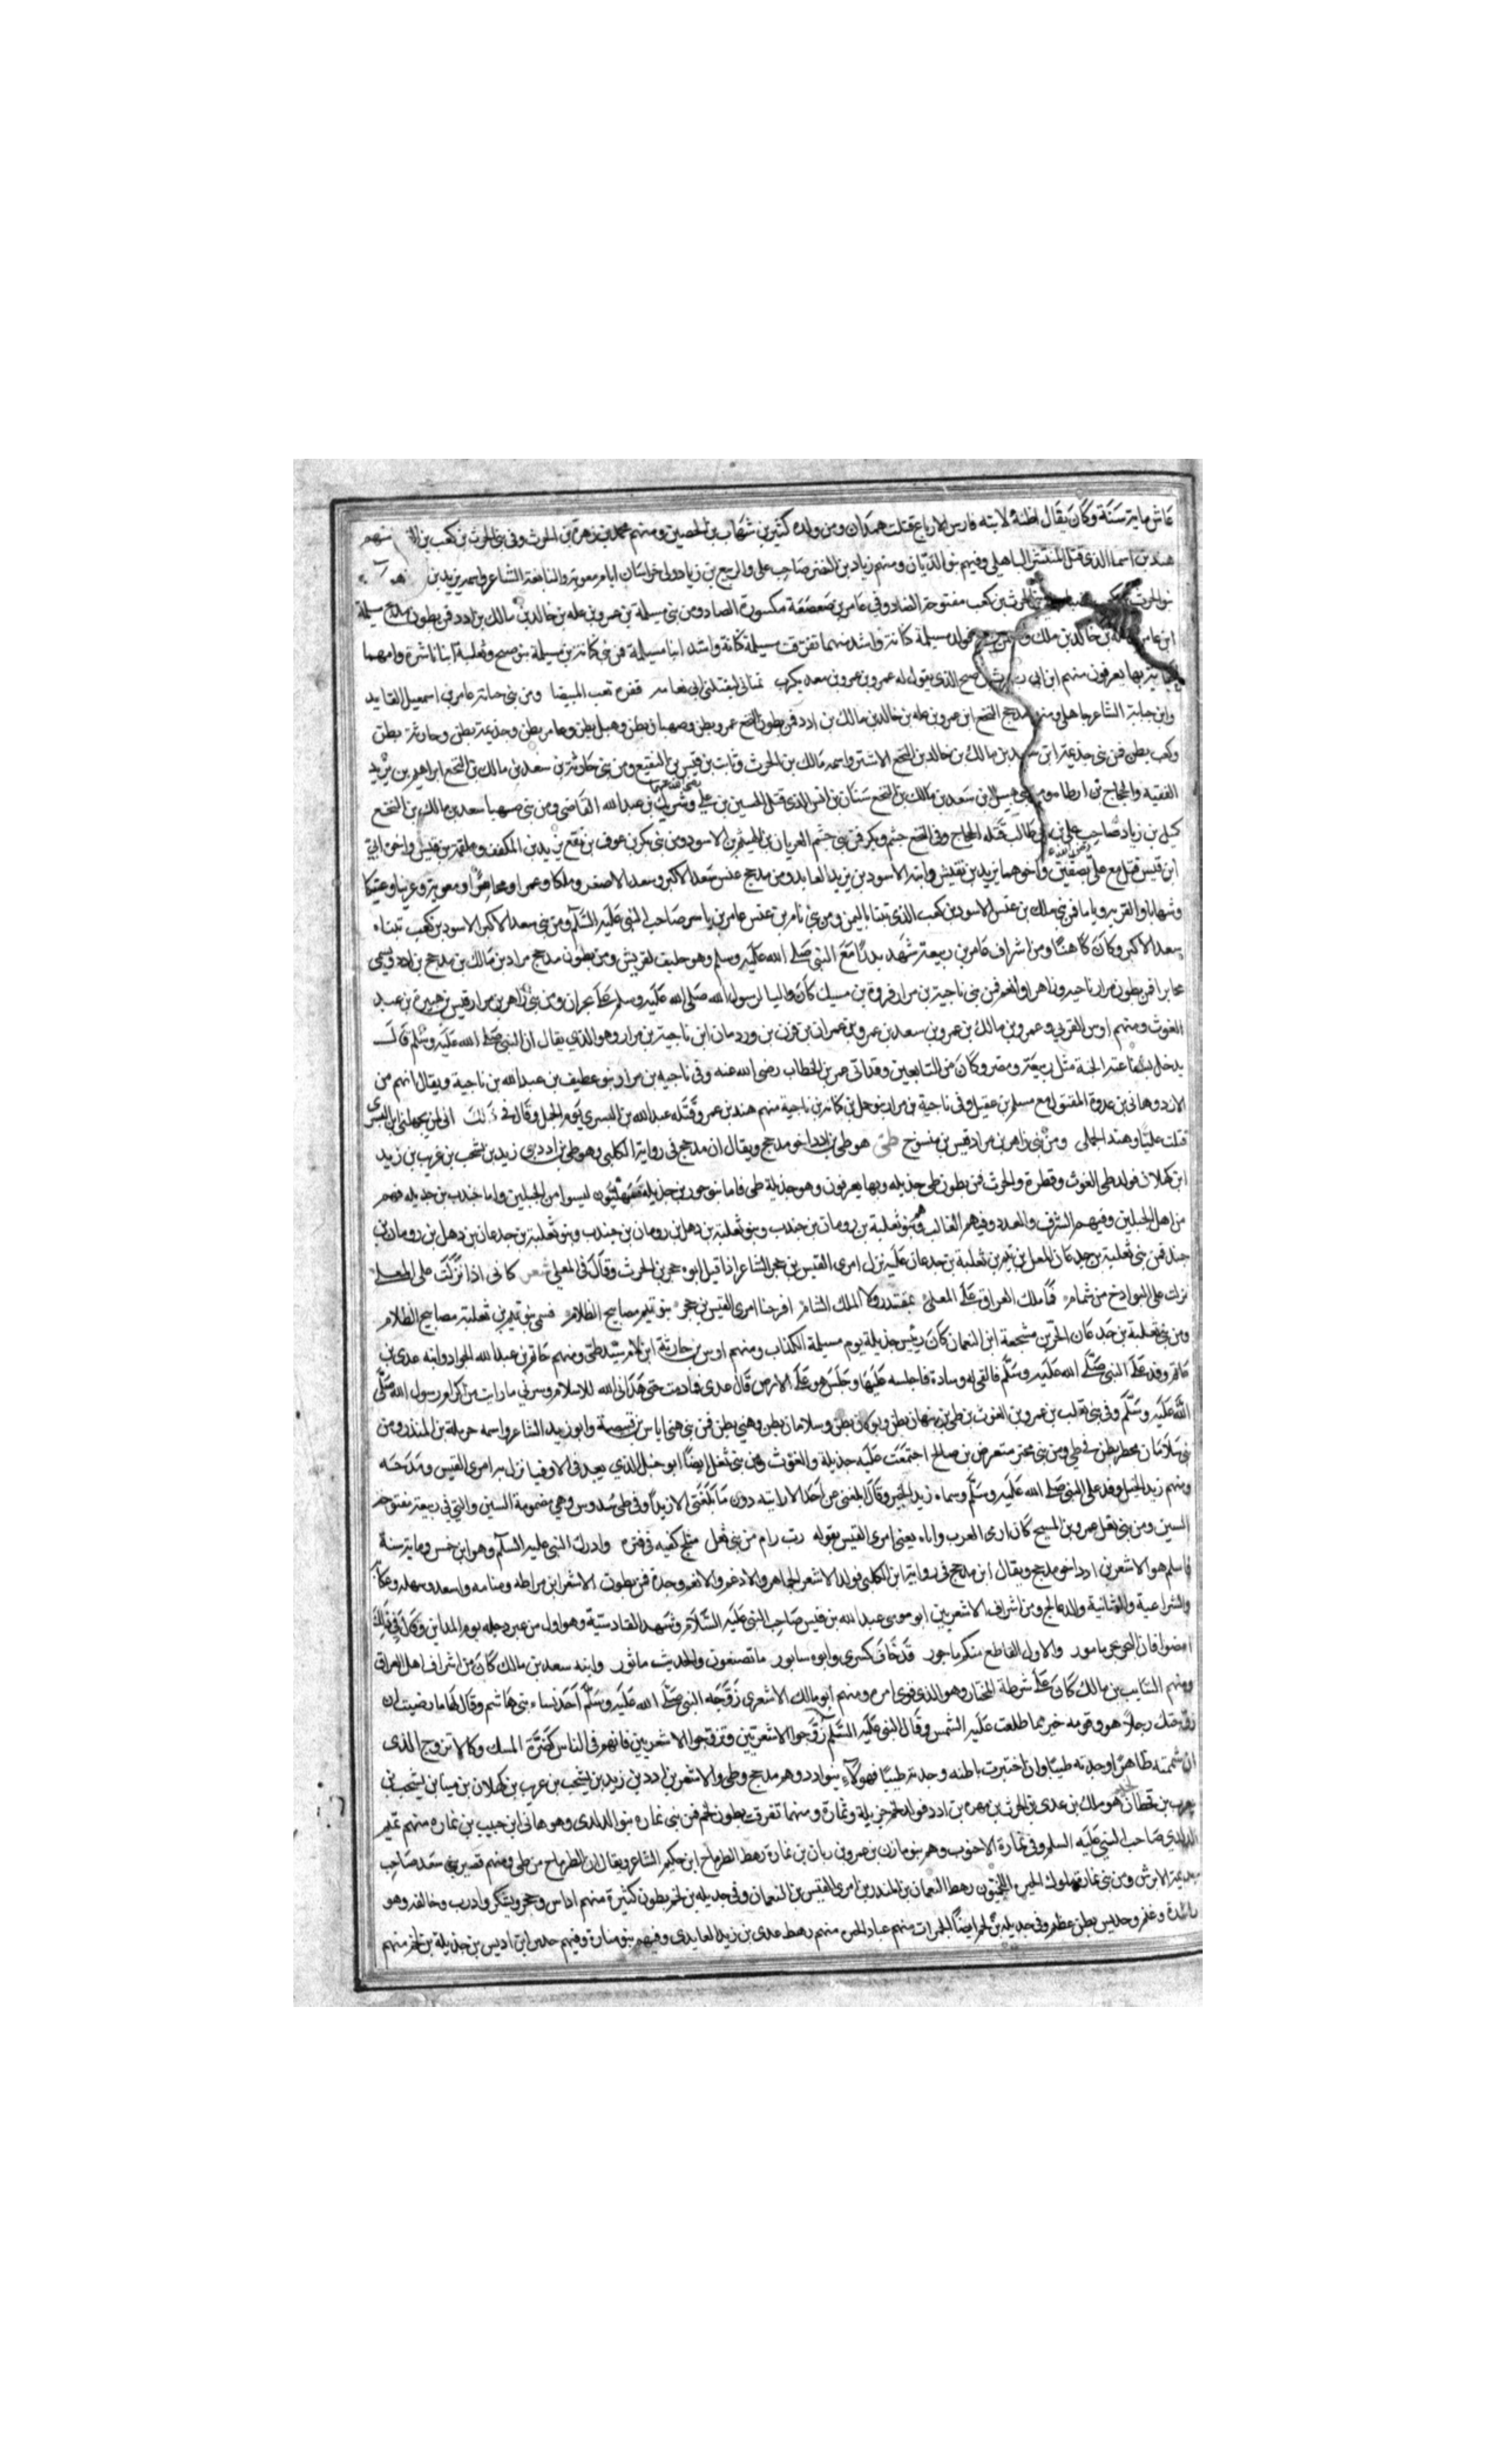 عاش ماية سنة وكان يقال لابنه فارس الارباع قتلت همدان ومن ولده كثير بن شهاب بن الحصين ومنهم محمد بن زهرة بن الحرث وفي بني الحرث بن كعب بن
هند بن اسما الذي قتل المنتشر الباهلي وفيهم بنو الديان ومنهم زياد بن النضر صاحب علي والربيع بن زياد ولي خراسان ايام معوية والنابغة الشاعر واسمه يزيد بن
الحرث بن كعب مفتوحة الضاد وفي عامر بن صعصعة مكسورة الصاد ومن بني مسيلة بن عمرو بن عله بن خالد بن مالك بن ادد فمن بطون مذحج مسيلة
ابن عامر بن خالد بن ملك فولد مسيلة كنانة واشد منهما تفرقت مسيلة كنانة واشد ابنا مسيلة فمن بني كنانة بن مسيلة بنو صبح وثعلبة ابنا ناشرة وامهما
بها يعرفون منهم ابن ابي صبح الذي يقول له عمرو بن معد يكرب تمناني ليقتلني ابي ومن بني عامر بن اسمعيل القايد
وابن جبابة الشاعر جاهلي ومن مذحج النخع ابن عمرو بن عله بن خالد بن مالك بن ادد فمن بطون النخع عمرو بطن وصهبان بطن وهبيل بطن وعامر بطن وجذيمة بطن وحارثة بطن
وكعب بطن فمن بني جذيمة ابن سعد بن مالك بن النخع الاشتر واسمه مالك بن الحرث وثابت بن قيس بن المنقع ومن بني حارثة بن سعد بن مالك بن النخع ابراهيم بن يزيد
الفقيه والحجاج بن ارطاه ومن بن سعد بن مالك بن النخع سنان بن انس الذي قتل الحسين بن علي وشريك بن عبد الله القاضي ومن بني صهبا سعد بن مالك بن النخع
كميل بن زياد صاحب علي بن ابي طالب قتله الحجاج وفي النخع جشم وبكر فمن بني جشم العريان بن الهيثم بن الاسود ومن بني بكر بن عوف بن النخع يزيد بن المكفف وعلقمة بن قيس واخوه ابي
ابن قيس قتل مع علي بصفين واخوهما يزيد بن قيس وابنه الاسود بن يزيد العابد ومن مذحج عنس سعد الاكبر وسعد الاصغر وملكا وعمرا ومعوية وعريبا وعتيكا
وشهابا والقرية وياما فمن بني ملك بن عنس الاسود بن كعب الذي تنبا باليمن ومن بني يام بن عنس عامر بن ياسر صاحب النبي عليه السلم ومن بني سعد الاكبر الاسود بن كعب تبناه
سعد الاكبر وكان كاهنا ومن اشراف عامر بن ربيعة شهد بدرا مع النبي صلى الله عليه وسلم وهو حليف لقريش ومن بطون مذحج مراد بن مالك بن مذحج بن ادد ويسمى
يحابر فمن بطون مراد ناجيه وزاهر وانعم فمن بني ناجية بن مراد فروة بن مسيك كان واليا لرسول الله صلى الله عليه وسلم على نجران ومن بني زاهر بن مراد قيس بن هبيرة بن عبد
الغوث ومنهم اويس القرني وعمرو بن مالك بن عمرو بن سعد بن عمرو بن عمران بن قرن بن ردمان ابن ناجية بن مراد وهو الذي يقال ان النبي صلى الله عليه وسلم قال
يدخل بشفاعته الجنة مثل ربيعة ومضر وكان من التابعين وقد اتى عمر بن الخطاب رضي الله عنه وفي ناجيه بن مراد بنو غطيف بن عبد الله بن ناجية ويقال انهم من
الازد وهاني بن عروة المقتول مع مسلم بن عقيل وفي ناجية بن مراد بنو جمل بن كنانة بن ناجية منهم هند بن عمرو قتله عبد الله بن اليسري يوم الجمل وقال في ذلك
قتلت عليا وهند الجملي ومن بني زاهر بن مراد قيس طي هو طي بن ادد اخو مذحج ويقال ان مذحج في رواية الكلبي وهو طي بن ادد بن زيد بن يشجب بن عريب بن زيد
ابن كهلان فولد طي الغوث وفطرة والحرث فمن بطون طي جذيله وبها يعرفون وهو جذيلة طي فاما بنو حور بن جذيلة فسهليون ليسوا من الجبلين واما جندب بن جديله فهم
من اهل الجبلين وفيهم الشرف والعدد وفيهم الثعالب وهم بنو ثعلبة بن رومان بن جندب وبنو ثعلبة بن ذهل بن رومان بن جندب وبنو ثعلبة بن جدعان بن ذهل بن رومان بن
جندب فمن بني ثعلبة بن جدعان المعلى بن تيم بن ثعلبة بن جدعان عليه نزل امرئ القيس بن حجر الشاعر اذا قيل ابوه حجر بن الحرث وقال في المعلى شعر كاني اذا نزلت على المعلى
نزلت على البوادخ من شمام فما ملك العراق على المعلى بمقتدر ولا الملك الشام اقر حشا امرئ القيس بن حجر بنو تيم مصابيح الظلام فسمي بنو تيم بن ثعلبة مصابيح الظلام
ومن بني ثعلبة بن جدعان الحر بن مشجعة ابن النعمان كان رئيس جذيلة يوم مسيلمة الكذاب ومنهم اوس بن حارثة ابن لام سيد طي ومنهم حاتم بن عبد الله الجواد وابنه عدي بن
حاتم وفد على النبي صلى الله عليه وسلم فالقى له وسادة فاجلسه عليها وجلس هو على الارض قال عدي فما رمت حتى هداني الله للاسلام وسرني ما رايت من اكرام رسول الله صلى
الله عليه وسلم وفي بني ثعلب بن عمرو بن الغوث بن طي بن نبهان بطن وبولان بطن وسلامان بطن وهني بطن فمن بني هني اياس بن قبيصة وابو زبيد الشاعر واسمه حرملة بن المنذر ومن
بني سلامان بحتر بطن في طي ومن بني بحتر معرض بن صالح اجتمعت عليه جذيلة والغوث ومن بني ثعل ايضا ابو حنبل الذي يعد في الاوفيا نزل به امرئ القيس ومدحه
ومنهم زيد الخيل وفد على النبي صلى الله عليه وسلم وسماه زيد الخير وقال ما بلغني عن احد الا رايته دون ما بلغني الا زيدا وفي طي سدوس وهي مضمومة السين والتي في ربيعة مفتوحة
السين ومن بني ثعل عمرو بن المسبح كان ارمى العرب واياه يعني امرئ القيس بقوله رب رام من بني ثعل متلج كفيه في قتره وادرك النبي عليه السلم وهو ابن خمس وماية سنة
فاسلم هو الاشعر بن ادد اخو مذحج ويقال ابن مذحج في رواية ابن الكلبي فولد الاشعر الجماهر والادغم والانعم وجدة فمن بطون الاشعر
والشراعية والعثانية والدعالج ومن اشراف الاشعريين ابو موسى عبد الله بن قيس صاحب النبي عليه السلام وشهد القادسية وهو اول من عبر دجله يوم المداين وقال في ذلك
امضوا فان البحر بحر مامور والاول القاطع منكم ماجور قد خاف كسرى وابوه سابور ما تصنعون والحديث ماثور وابنه سعد بن مالك كان من اشراف اهل العراق
ومنهم السايب بن مالك كان على شرطة المختار وهو الذي قوى امره ومنهم ابو مالك الاشعري زوجه النبي صلى الله عليه وسلم احد نساء بني هاشم وقال لها ما رضيت ان
زوجتك رجلا هو وقومه خير مما طلعت عليه الشمس وقال النبي عليه السلم زوجوا الاشعريين وتزوجوا الاشعريين فانهم في الناس كصرة المسك وكالاترج الذي
ان شممته ظاهرا وجدته طيبا وان اختبرت باطنه وجدته طيبا فهولاء بنو ادد وهم مذحج وطي والاشعر بن ادد بن زيد بن يشجب بن عريب بن كهلان بن سبا بن يشجب بن
يعرب بن قحطان هو ملك بن عدي بن الحرث بن مره بن ادد فولد لخم جزيلة ونمارة ومنهما تفرقت بطون لخم فمن بني نماره بنو الدار وهو هاني ابن حبيب بن نماره منهم تميم
الداري صاحب النبي عليه السلم وفي نمارة الاجنوب وهم بنو مازن بن عمرو بن زيان بن نمارة رهط الطرماح ابن حكيم الشاعر ويقال ان الطرماح من طي ومنهم قصير بن سعد صاحب
جذيمة الابرش ومن بني نمارة ملوك الحيره اللخميون رهط النعمان بن المنذر بن امرئ القيس بن النعمان وفي جديله بن لخم بطون كثيرة منهم اداس وحجر ويشكر وادب وخالفه وهو
راشدة وغنم وجديس بطن عظيم وفي جديله بن لخم ايضا منهم عباد منهم رهط عدي بن زيد العبادي وفيهم بنو منارة وفيهم حدس ابن اديس بن جذيلة بن لخم منهم